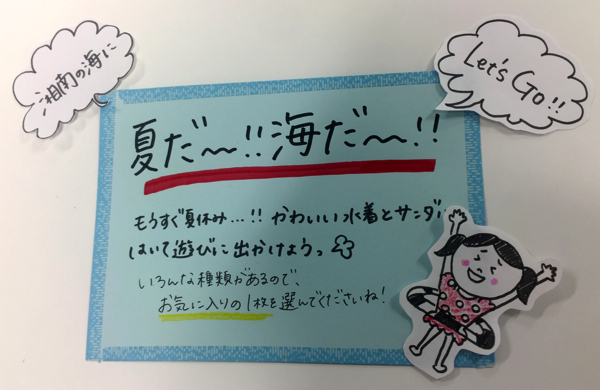 湘南の海に
Let's Go!!
夏だ〜!!海だ〜!!
もうすぐ夏休み…!! かわいい水着とサンダ
はいて遊びに出かけようっ
いろんな種類があるので、
お気に入りの1枚を選んでくださいね!